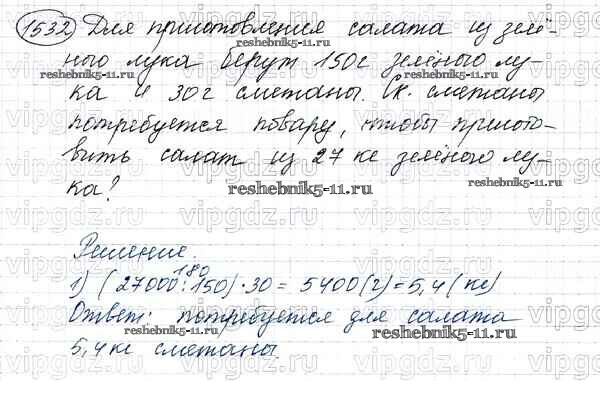 1532 Для приготовления салата из зелё-
ного лука берут 150г зелёного лу-
ка и 30г сметаны. Ск. сметаны
потребуется повару, чтобы пригото-
вить салат из 27 кг зелёного лу-
ка?
Решение.
180
1) (27000:150)·30 = 5400(г)=5,4(кг)
Ответ: потребуется для салата
5,4кг сметаны.
reshebnik5-11.ru
vipgdz.ru